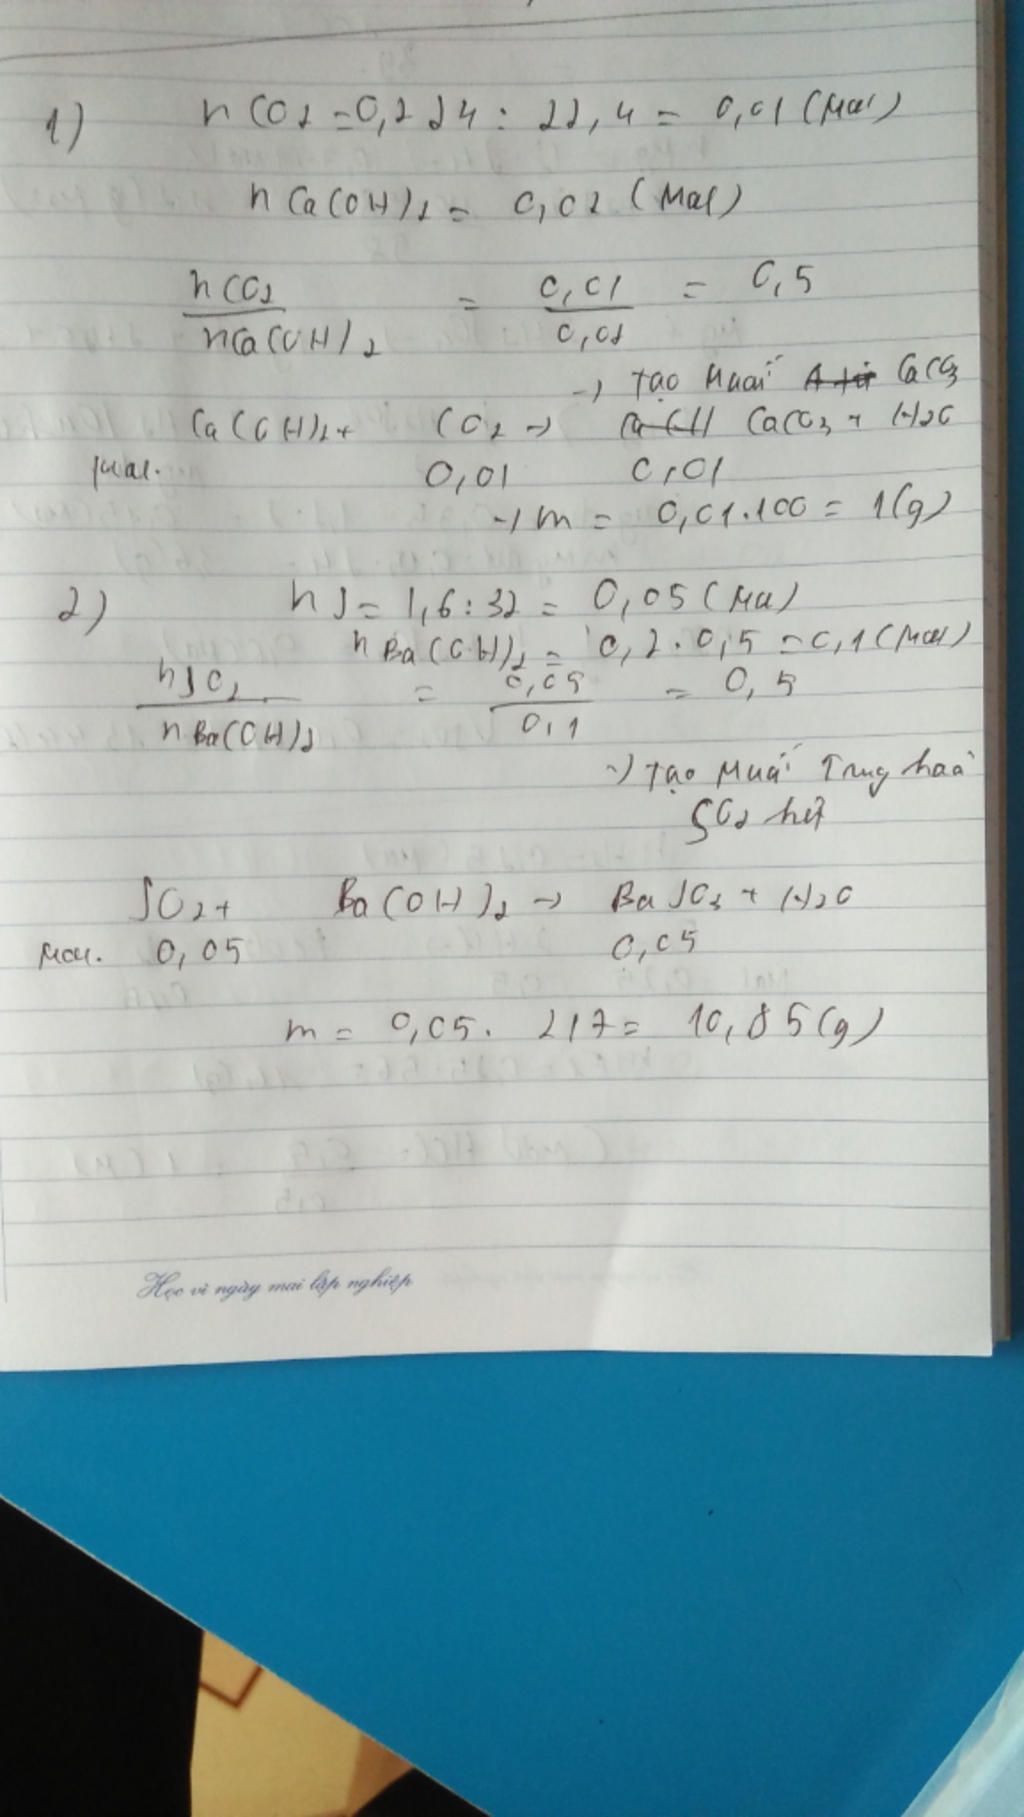 1) nCO2 = 0,224 : 22,4 = 0,01 (mol)
nCa(OH)2 = 0,02 (mol)
nCO2 / nCa(OH)2 = 0,01 / 0,02 = 0,5
→ Tạo muối CaCO3
Ca(OH)2 + CO2 → CaCO3 + H2O
mol. 0,01 0,01
→ m = 0,01.100 = 1(g)
2) nS = 1,6 : 32 = 0,05 (mol)
nBa(OH)2 = 0,2 . 0,5 = 0,1 (mol)
nSO2 / nBa(OH)2 = 0,05 / 0,1 = 0,5
→ Tạo muối Trung hoà
SO2 hết
SO2 + Ba(OH)2 → BaSO3 + H2O
mol. 0,05 0,05
m = 0,05. 217 = 10,85(g)
Học vì ngày mai lập nghiệp